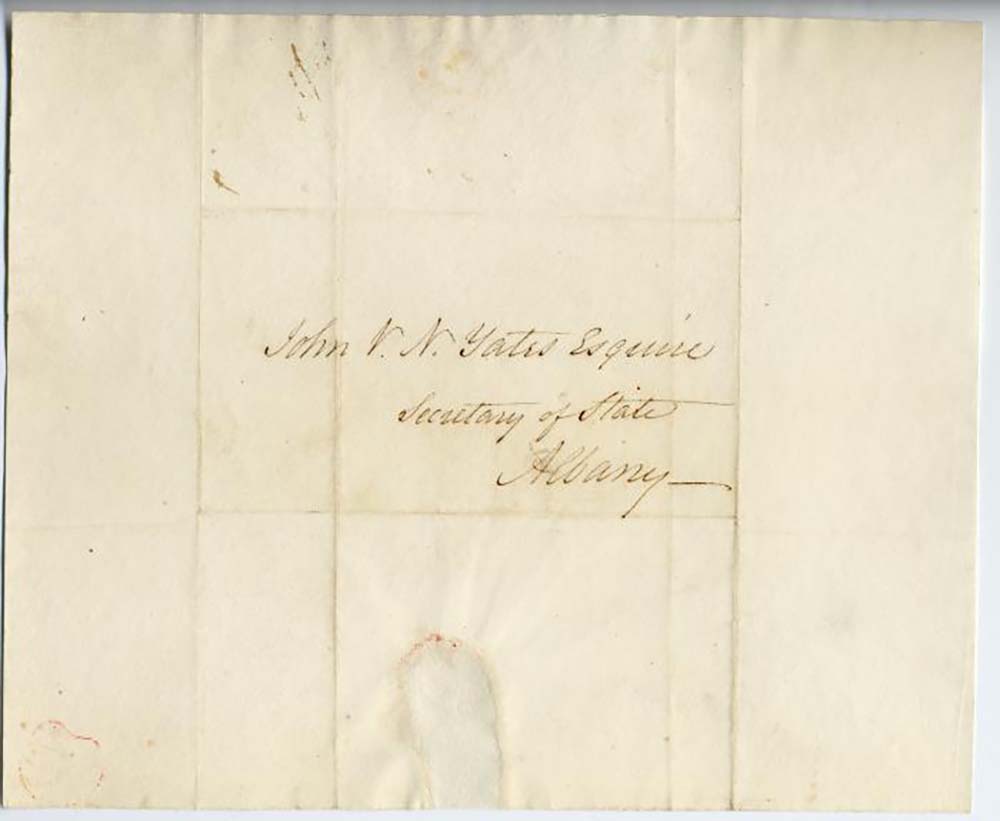 John V. N. Yates Esquire
Secretary of State
Albany